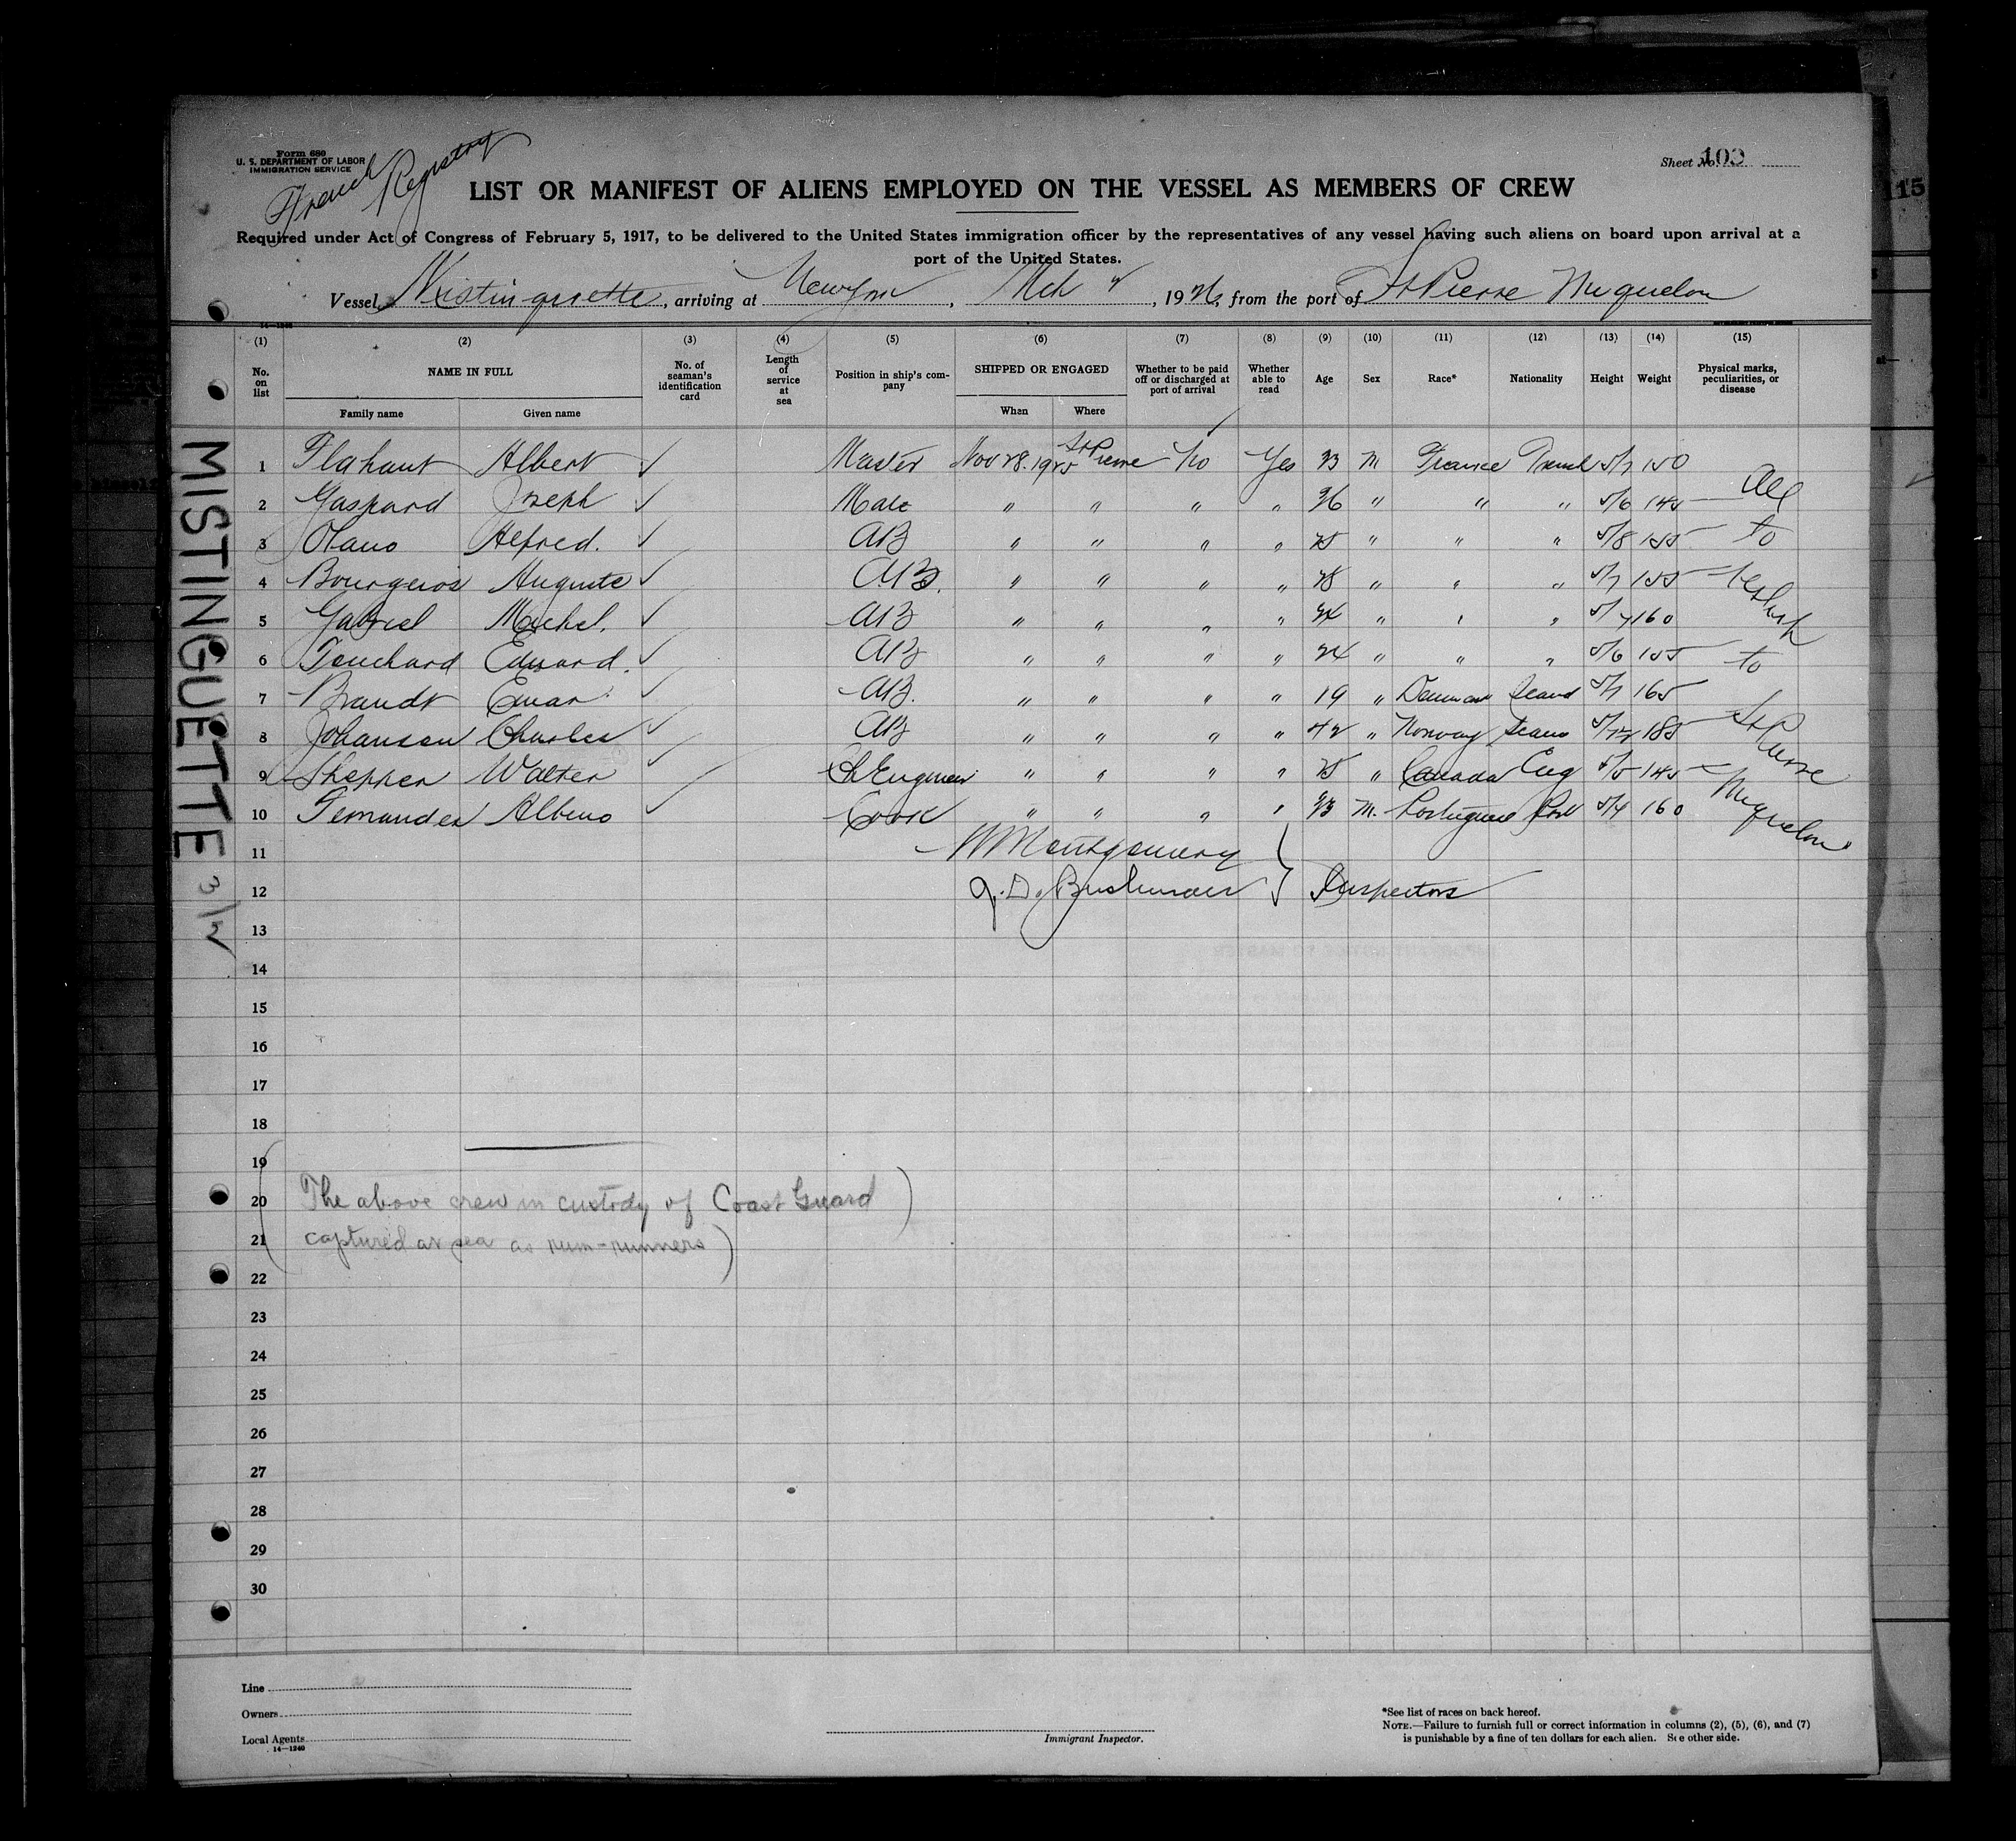 Form 680
U. S. DEPARTMENT OF LABOR
IMMIGRATION SERVICE
French Registry
Sheet No. 103
LIST OR MANIFEST OF ALIENS EMPLOYED ON THE VESSEL AS MEMBERS OF CREW
Required under Act of Congress of February 5, 1917, to be delivered to the United States immigration officer by the representatives of any vessel having such aliens on board upon arrival at a
port of the United States.
Vessel Mistinguette, arriving at New York, Mch 2, 1926, from the port of St Pierre Miquelon
14—1240
(1) (2) (3) (4) (5) (6) (7) (8) (9) (10) (11) (12) (13) (14) (15)
No. on list NAME IN FULL No. of seaman's identification card Length of service at sea Position in ship's company SHIPPED OR ENGAGED Whether to be paid off or discharged at port of arrival Whether able to read Age Sex Race* Nationality Height Weight Physical marks, peculiarities, or disease
Family name Given name When Where
1 Plahaut Albert ✓ Master Nov 28. 1925 St Pierre No Yes 33 M France French 5/7 150
2 Gaspard Joseph ✓ Mate " " " " 36 " " " 5/6 145 All
3 Olano Alfred. ✓ AB " " " " 25 " " " 5/8 155 to
4 Bourgeois Auguste ✓ AB. " " " " 28 " " " 5/7 155 reship
5 Gabriel Michel. ✓ AB " " " " 24 " " " 5/7 160
6 Touchard Edward. ✓ AB " " " " 24 " " " 5/6 155 to
7 Brandt Einar ✓ AB. " " " " 19 " Denmark Scand 5/7 165
8 Johansen Charles ✓ AB " " " " 42 " Norway Scand 185 St Pierre
9 Shepper Walter ✓ Ch Engineer " " " " 25 " Canada Eng 5/5 145
10 Fernandes Albino ✓ Cook " " " " 33 M. Portuguese Port 5/4 160 Miquelon
11 W Montgomery
12 J. D. Inspectors
13
14
15
16
17
18
19
20 (The above crew in custody of Coast Guard)
21 captured at sea as rum-runners)
22
23
24
25
26
27
28
29
30
MISTINGUETTE 3/2
Line
Owners
Local Agents
14—1240
Immigrant Inspector.
*See list of races on back hereof.
NOTE.—Failure to furnish full or correct information in columns (2), (5), (6), and (7)
is punishable by a fine of ten dollars for each alien. See other side.
115